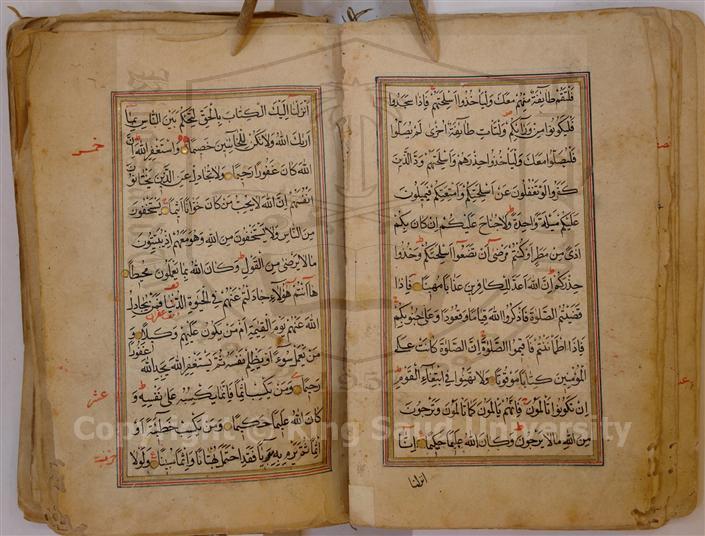 فلتقم طايفة منهم معك ولياخذوا اسلحتهم فاذا سجدوا
فليكونوا من ورايكم ولتات طايفة اخرى لم يصلوا
فليصلوا معك ولياخذوا حذرهم واسلحتهم ود الذين
كفروا لو تغفلون عن اسلحتكم وامتعتكم فيميلون
عليكم ميلة واحدة ولا جناح عليكم ان كان بكم
اذى من مطر او كنتم مرضى ان تضعوا اسلحتكم وخذوا
حذركم ان الله اعد للكافرين عذابا مهينا فاذا
قضيتم الصلوة فاذكروا الله قياما وقعودا وعلى جنوبكم
فاذا اطماننتم فاقيموا الصلوة ان الصلوة كانت على
المؤمنين كتابا موقوتا ولا تهنوا في ابتغاء القوم
ان تكونوا تالمون فانهم يالمون كما تالمون وترجون
من الله مالا يرجون وكان الله عليما حكيما انا
انزلنا
انزلنا اليك الكتاب بالحق لتحكم بين الناس بما
اريك الله ولا تكن للخائنين خصيما واستغفر الله ان
الله كان غفورا رحيما ولا تجادل عن الذين يختانون
انفسهم ان الله لا يحب من كان خوانا اثيما يستخفون
من الناس ولا يستخفون من الله وهو معهم اذ يبيتون
مالا يرضى من القول وكان الله بما يعملون محيطا
ها انتم هؤلاء جادلتم عنهم في الحيوة الدنيا فمن يجادل
الله عنهم يوم القيمة ام من يكون عليهم وكيلا و
من يعمل سوءا او يظلم نفسه ثم يستغفر الله يجد الله غفورا
رحيما ومن يكسب اثما فانما يكسبه على نفسه و
كان الله عليما حكيما ومن يكسب خطيئة او
اثما ثم يرم به بريا فقد احتمل بهتانا واثما مبينا ولولا
عشر
Copyright © King Saud University